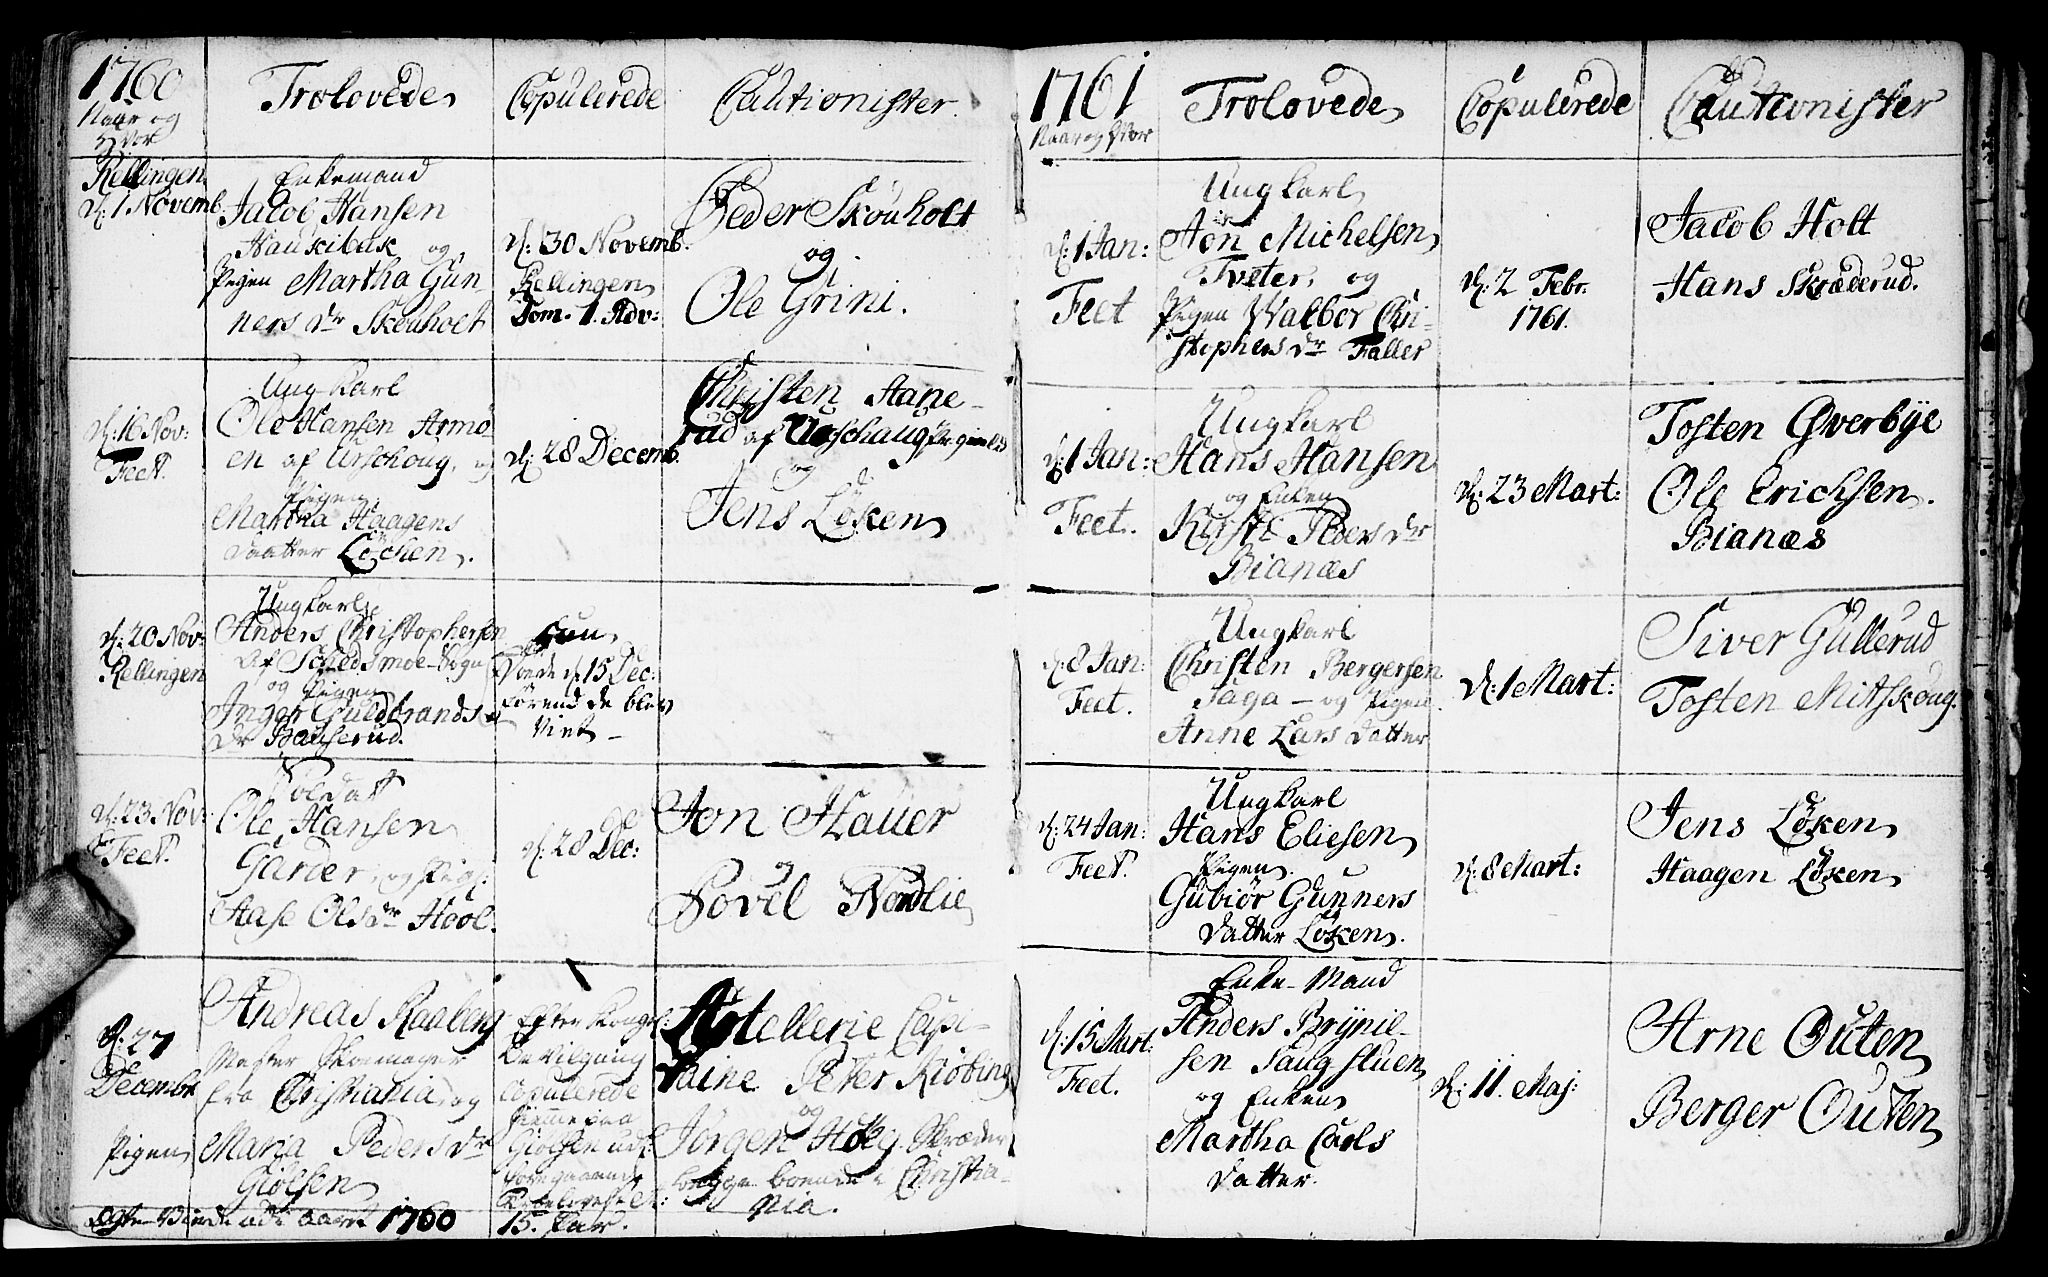 1760
Naar og
hvor
Trolovede
Copulerede
Cautionister
Rellingen
d: 1 Novemb.
Enkemand
Jacob Hansen
Hauxibak og
Pigen Martha Gun
ners dr Skouholt
d: 30 Novemb.
Rellingen
Dom. 1. Adv:
Peder Skouholt
og
Ole Grini.
d: 16 Nov:
Feet.
Ung Karl
Ole Hansen Armo
en af Urschoug, og
Pigen
Martha Haagens
Daatter Løchen.
d: 28 Decemb.
Christen Hane-
rud af Urschaug
og
Jens Løken
d: 20 Nov:
Rellingen
Ung Karl
Anders Christophersen
af Schedsmoe-Sogn
og Pigen
Inger Guldbrands
Dr Bauserud.
Hun
Døede d 15 Dec:
førend de blev
Viet -
d: 23 Nov:
Feet.
Soldat
Ole Hansen
Garder, og Pig:
Aase Ols dr Hool.
d: 28 Dec:
Jon Hauer
og
Povel Nordlie
d: 27
Decembr
Pigen
Andreas Raaberg
Mester Skomager
fra Christiania, og
Maria Peders dr
Giølsen
Efter Kongel:
Bevilgning
copulerede
hiemme paa
Giølsen ud:
foregaaende
Trolovelse d:
15. Jan.
Artellerie Capi-
taine Peter Kiøbing
og
Jørgen Høeg. Skræder
begge boende i Christia-
nia.
Ægte-Viede udi Aaret 1760
1761
Naar og hvor
Trolovede
Copulerede
Cautionister
d: 1 Jan:
Feet
Ung Karl
Jon Michelsen
Tveter, og
Pigen Walbor Chri-
stophers dr Faller
d: 2 Febr.
1761.
Jacob Holt
Hans Skræderud.
d: 1 Jan:
Feet.
Ung Karl
Hans Hansen
og Enken
Kirsti Peders dr
Bianæs
d: 23 Mart:
Tosten Øverbye
Ole Erichsen.
Bianæs
d: 8 Jan:
Feet.
Ung Karl
Christen Bergersen
Saga - og Pigen
Anne Lars Datter
d: 1 Mart:
Siver Gullerud
Tosten Mitskoug.
d: 24 Jan:
Feet.
Ung Karl
Hans Eliesen
Pigen
Gubiør Gunners
Datter Løken.
d: 8 Mart:
Jens Løken
Haagen Løken
d: 15 Mart:
Feet.
Enke-Mand
Anders Brÿniel-
sen Haugstuen
og Enken
Martha Carls
Datter.
d: 11. Maj:
Arne Outen
Berger Outen